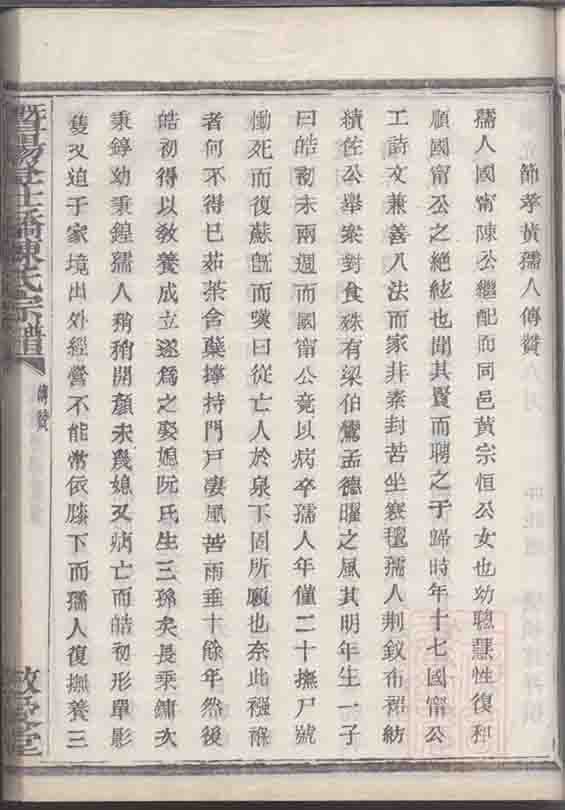 節孝黃孺人傳贊
孺人國甯陳公繼配而同邑黃宗恒公女也幼聰慧性復和
順國甯公之絕絃也聞其賢而聘之于歸時年十七國甯公
工詩文兼善八法而家非素封苦坐寒氊孺人荆釵布裙紡
績佐公舉案對食殊有梁伯鸞孟德曜之風其明年生一子
曰皓初未兩週而國甯公竟以病卒孺人年僅二十撫尸號
慟死而復蘇旣而嘆曰從亡人於泉下固所願也奈此襁褓
者何不得已茹茶含蘗擰持門戶凄風苦雨垂十餘年然後
皓初得以敎養成立遂爲之娶媳阮氏生三孫矣長秉鏞次
秉錞幼秉鍠孺人稍稍開顏未幾媳又病亡而皓初形單影
隻又迫于家境出外經營不能常依膝下而孺人復撫養三
暨陽
橋陳氏宗譜
傳贊
敦愛堂